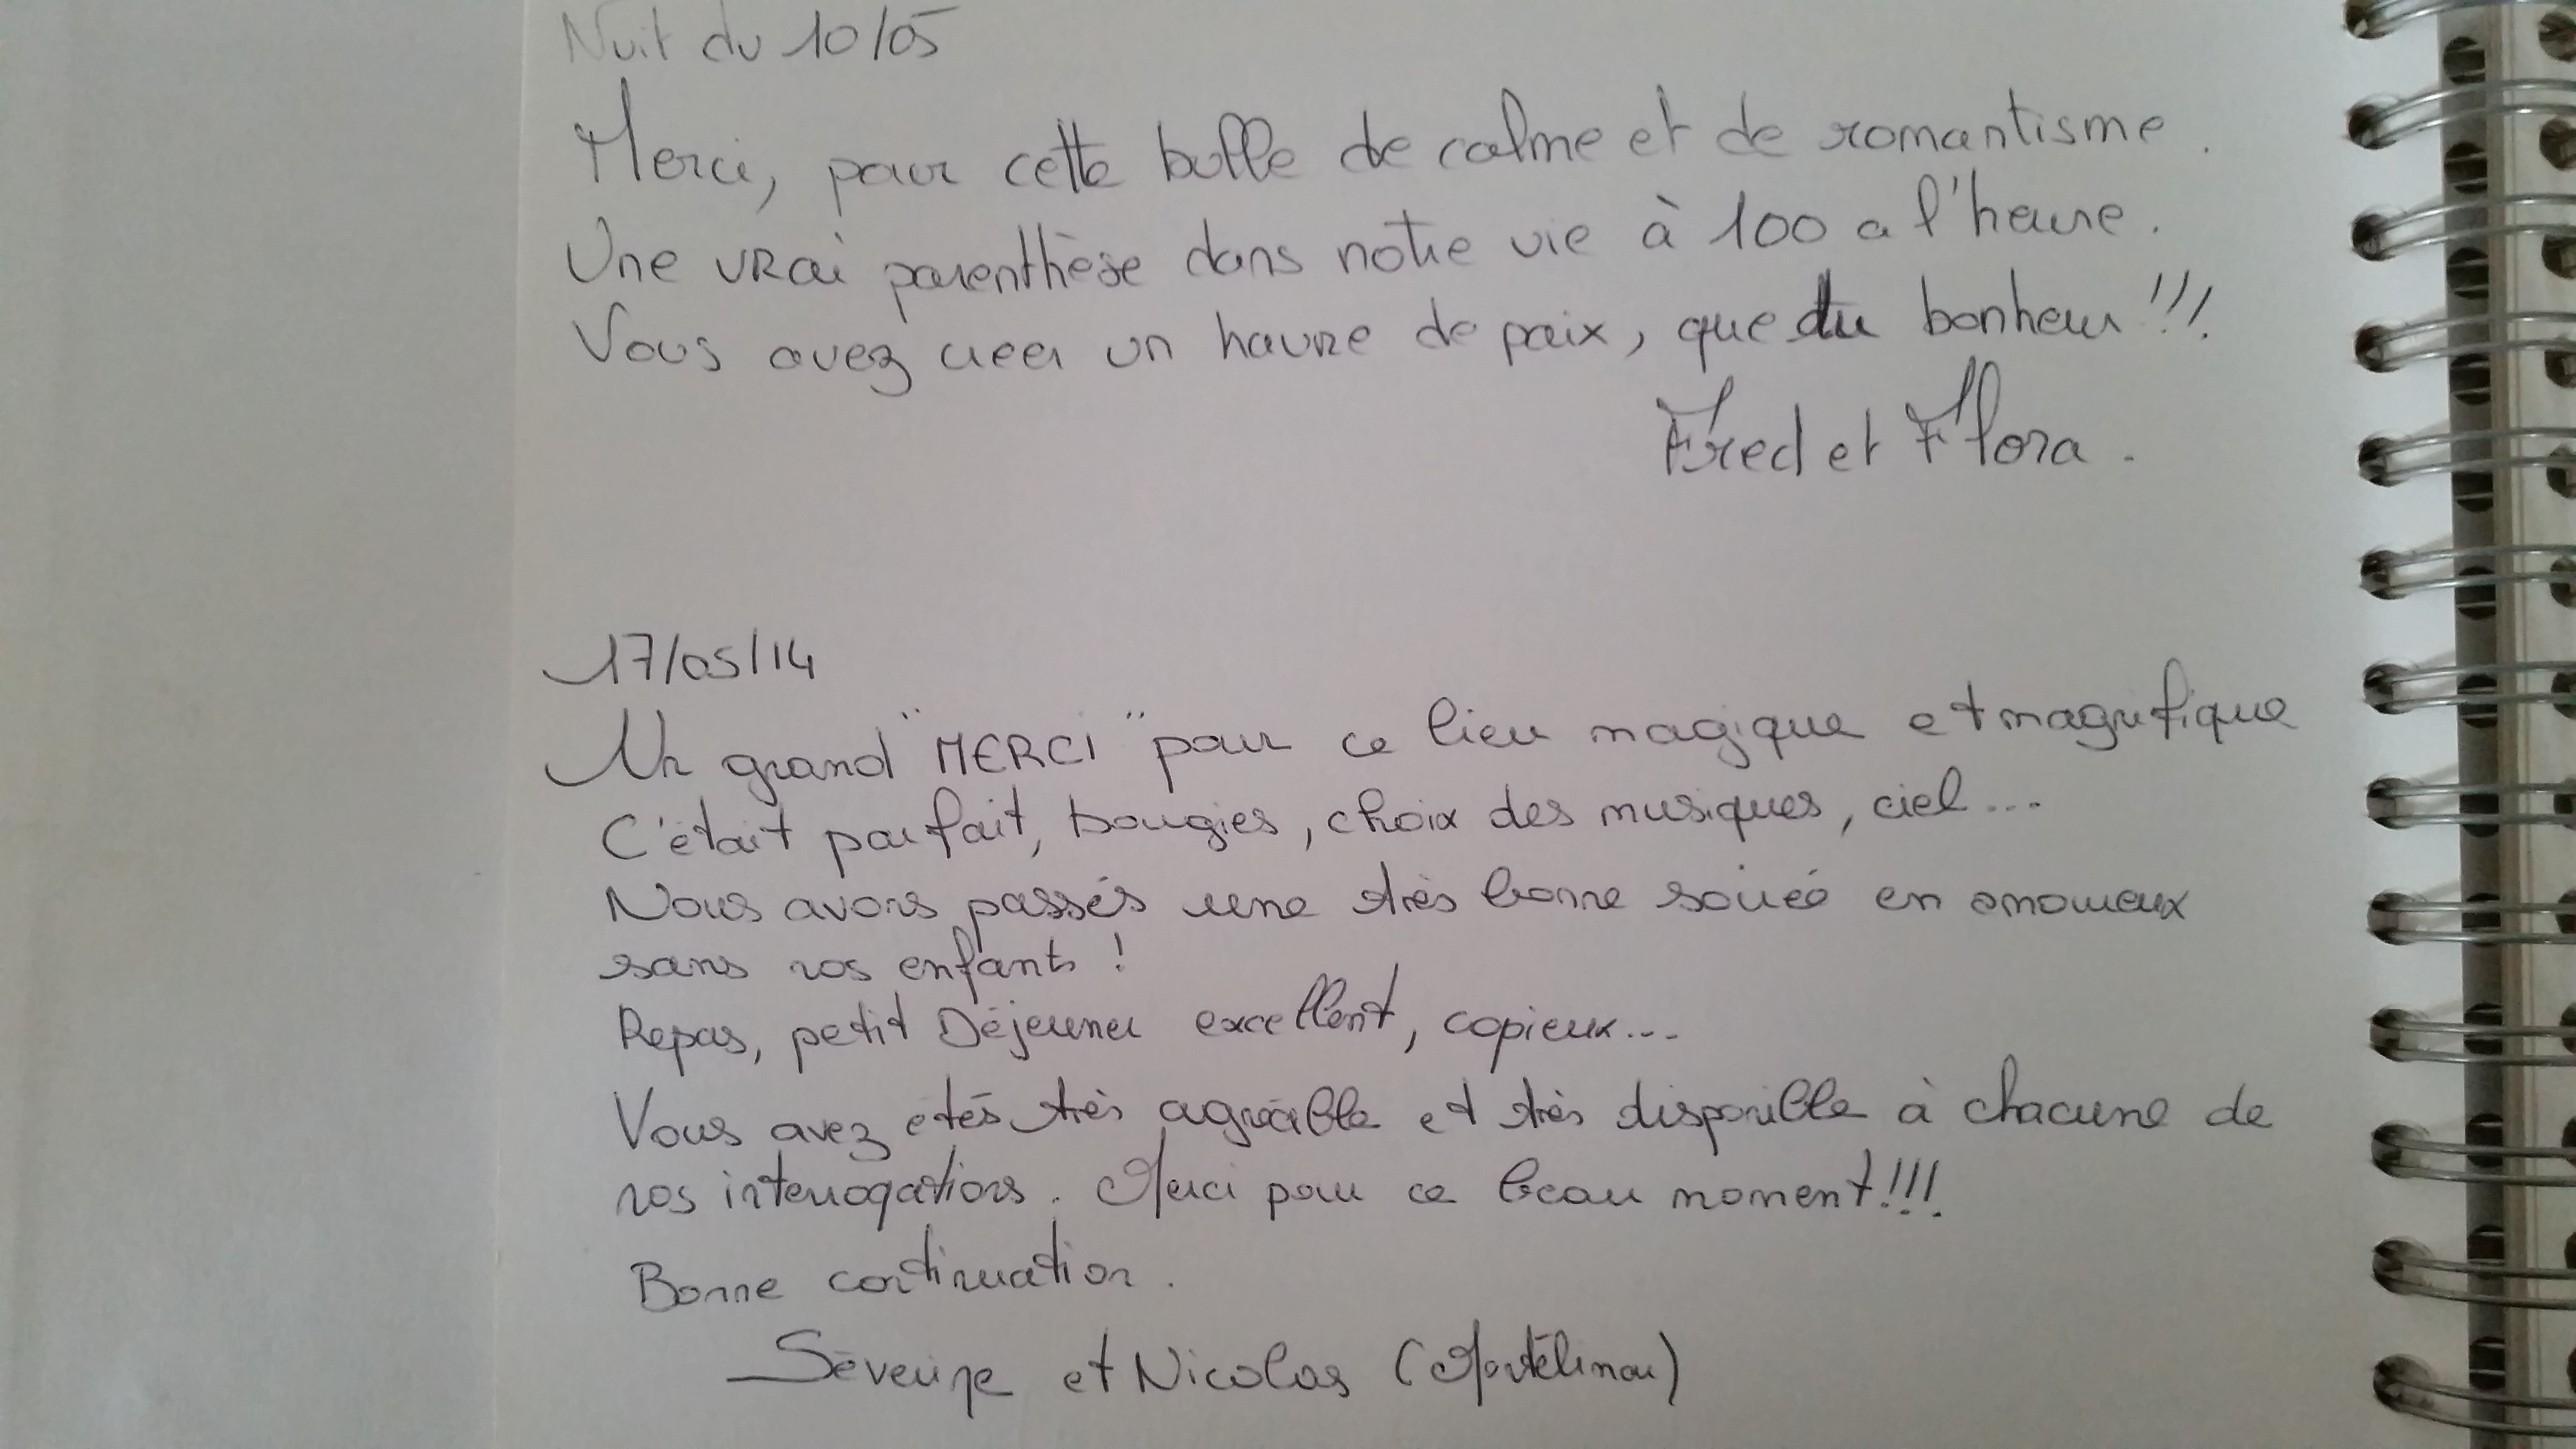 Nuit du 10/05
Merci, pour cette bulle de calme et de romantisme.
Une vrai parenthèse dans notre vie à 100 a l'heure.
Vous avez creer un havre de paix, que du bonheur !!!
Fred et Flora.
17/05/14
Un grand "MERCI" pour ce lieu magique et magnifique
C'était parfait, bougies, choix des musiques, ciel...
Nous avons passés une très bonne soirée en amoureux
sans nos enfants !
Repas, petit Déjeuner excellent, copieux...
Vous avez étés très agréable et très disponible à chacune de
nos interrogations. Merci pour ce beau moment !!!
Bonne continuation.
Séverine et Nicolas (Montélimar)